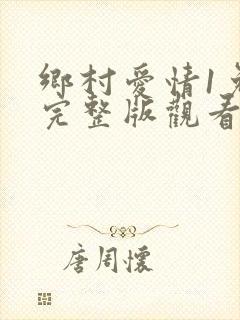 鄉村愛情1免
完整版觀看
唐周懷